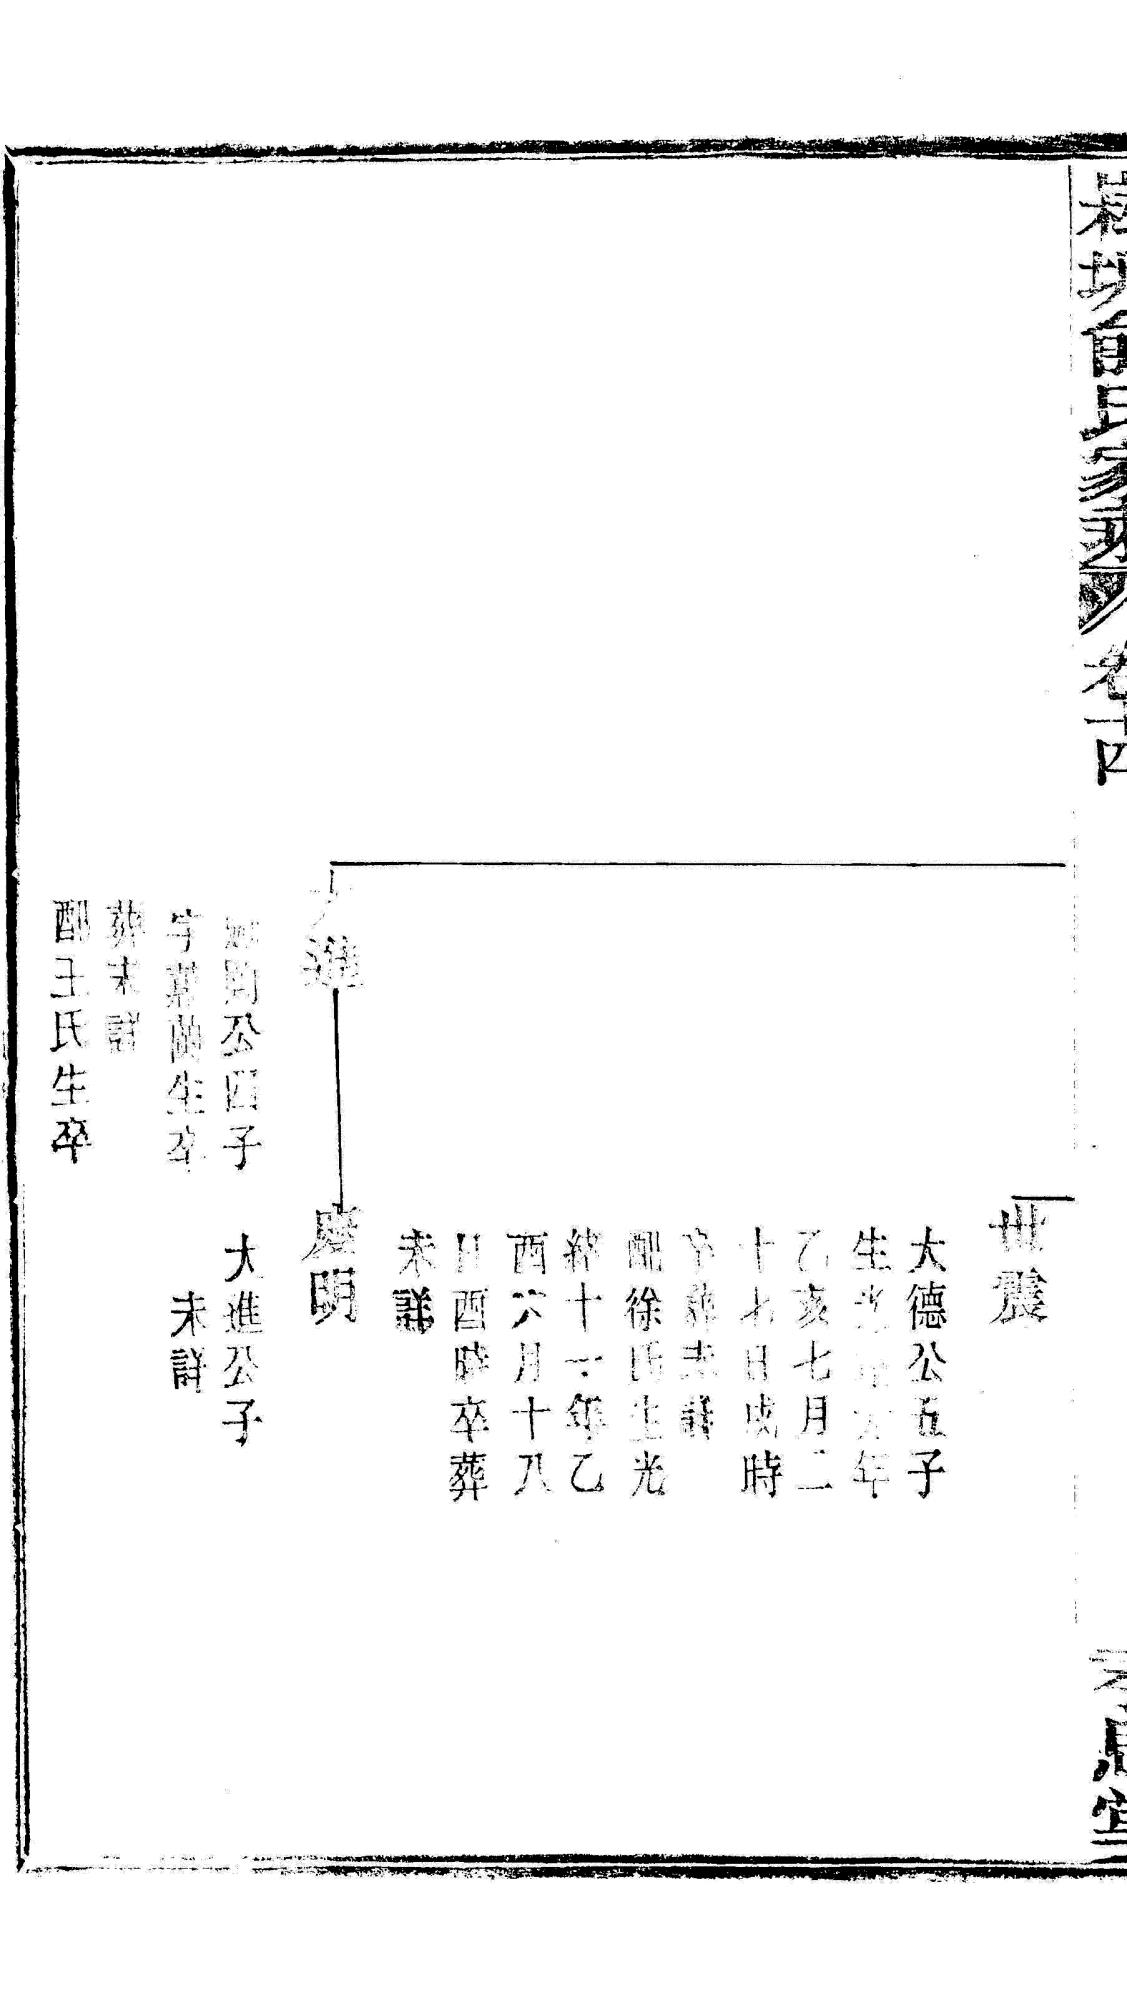 卷十四
思堂
世震
大德公五子
生光緒元年
乙亥七月二
十七日戌時
卒葬未詳
配徐氏生光
緒十一年乙
酉六月十八
日酉時卒葬
未詳
大進
慶明
公四子
字蘭生卒
葬未詳
配王氏生卒
大進公子
未詳